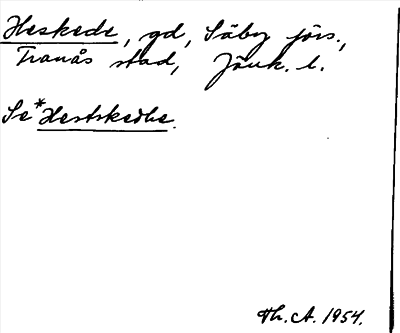 Heskede, gd, Säby jörs.,
Tranås stad, Jönk. l.
Se *Hestskedhe.
Th. A. 1954.